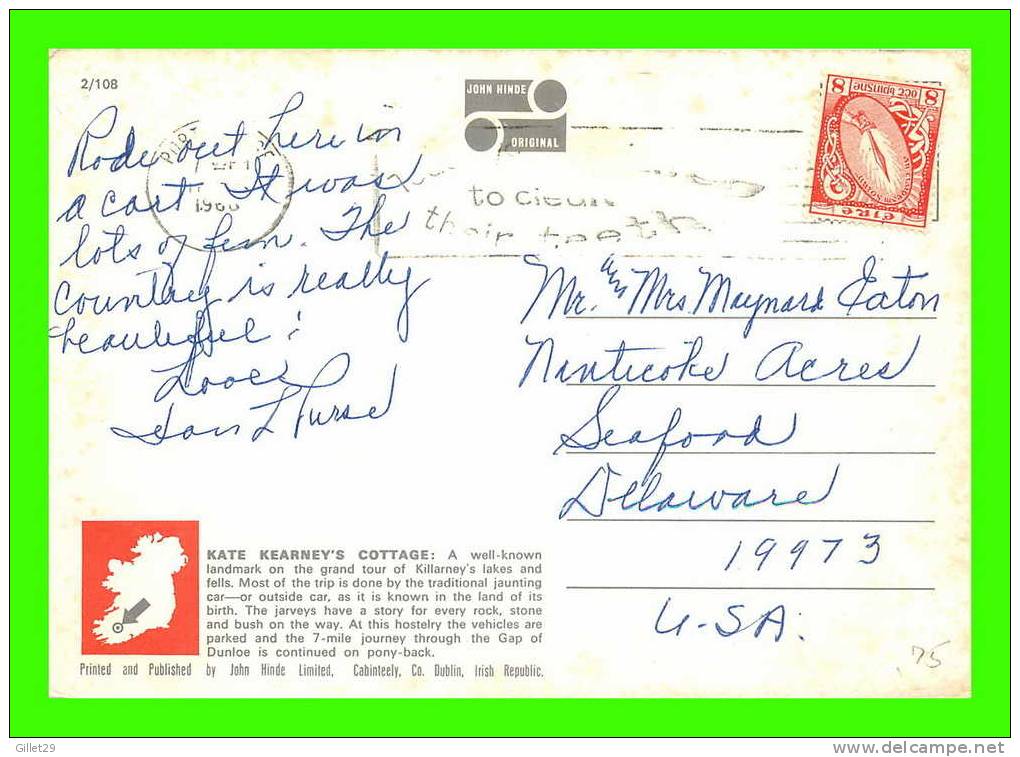 2/108
JOHN HINDE
ORIGINAL
Rode out here in
a cart. It was
lots of fun. The
country is really
beautiful!
Love
to clean
their teeth
8 8
éire
Mr. and Mrs Maynard Eaton
Nanticoke Acres
Seaford
Delaware
19973
U.S.A.
KATE KEARNEY'S COTTAGE: A well-known
landmark on the grand tour of Killarney's lakes and
fells. Most of the trip is done by the traditional jaunting
car—or outside car, as it is known in the land of its
birth. The jarveys have a story for every rock, stone
and bush on the way. At this hostelry the vehicles are
parked and the 7-mile journey through the Gap of
Dunloe is continued on pony-back.
Printed and Published by John Hinde Limited, Cabinteely, Co. Dublin, Irish Republic.
.75
Gillet29
http://www.delcampe.net